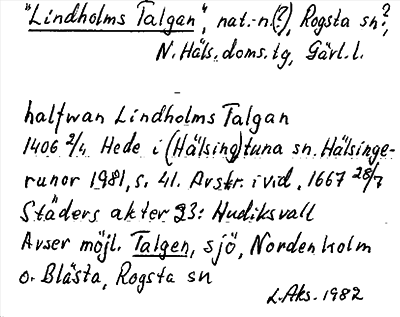 "Lindholms Talgan", nat.-n.(?), Rogsta sn?,
N. Häls. doms.lg, Gävl. l.
halfwan Lindholms Talgan
1406 2/4 Hede i (Hälsing)tuna sn. Hälsinge-
runor 1981, s. 41. Avskr. i vid. 1667 28/7
Städers akter 23: Hudiksvall
Avser möjl. Talgen, sjö, Nordenholm
o. Blästa, Rogsta sn
L. Aks. 1982